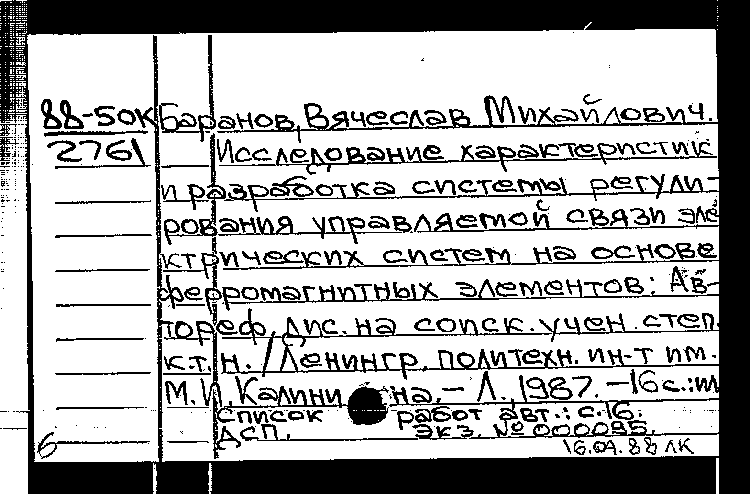 88-50К Баранов, Вячеслав Михайлович.
2761 Исследование характеристик
и разработка системы регули-
рования управляемой связи эле
ктрических систем на основе
ферромагнитных элементов: Ав-
тореф. дис. на соиск. учен. степ.
к.т.н. / Ленингр. политехн. ин-т им.
М.И. Калинина. – Л., 1987. – 16 с.: ил
Список работ авт.: с. 16.
ДСП. Экз. № 000085.
6 16.09.88 ЛК